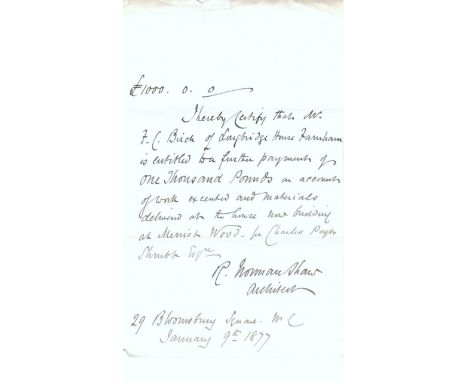 £1000. 0. 0
I hereby Certify that Mr.
F. C. Birch of Longbridge House Farnham
is entitled to a further payment of
One Thousand Pounds on account
of work executed and materials
delivered at the house now building
at Merrist Wood. for Charles Peyto
Shrubb Esqre
R. Norman Shaw
Architect
29 Bloomsbury Square. W C
January 9th 1877